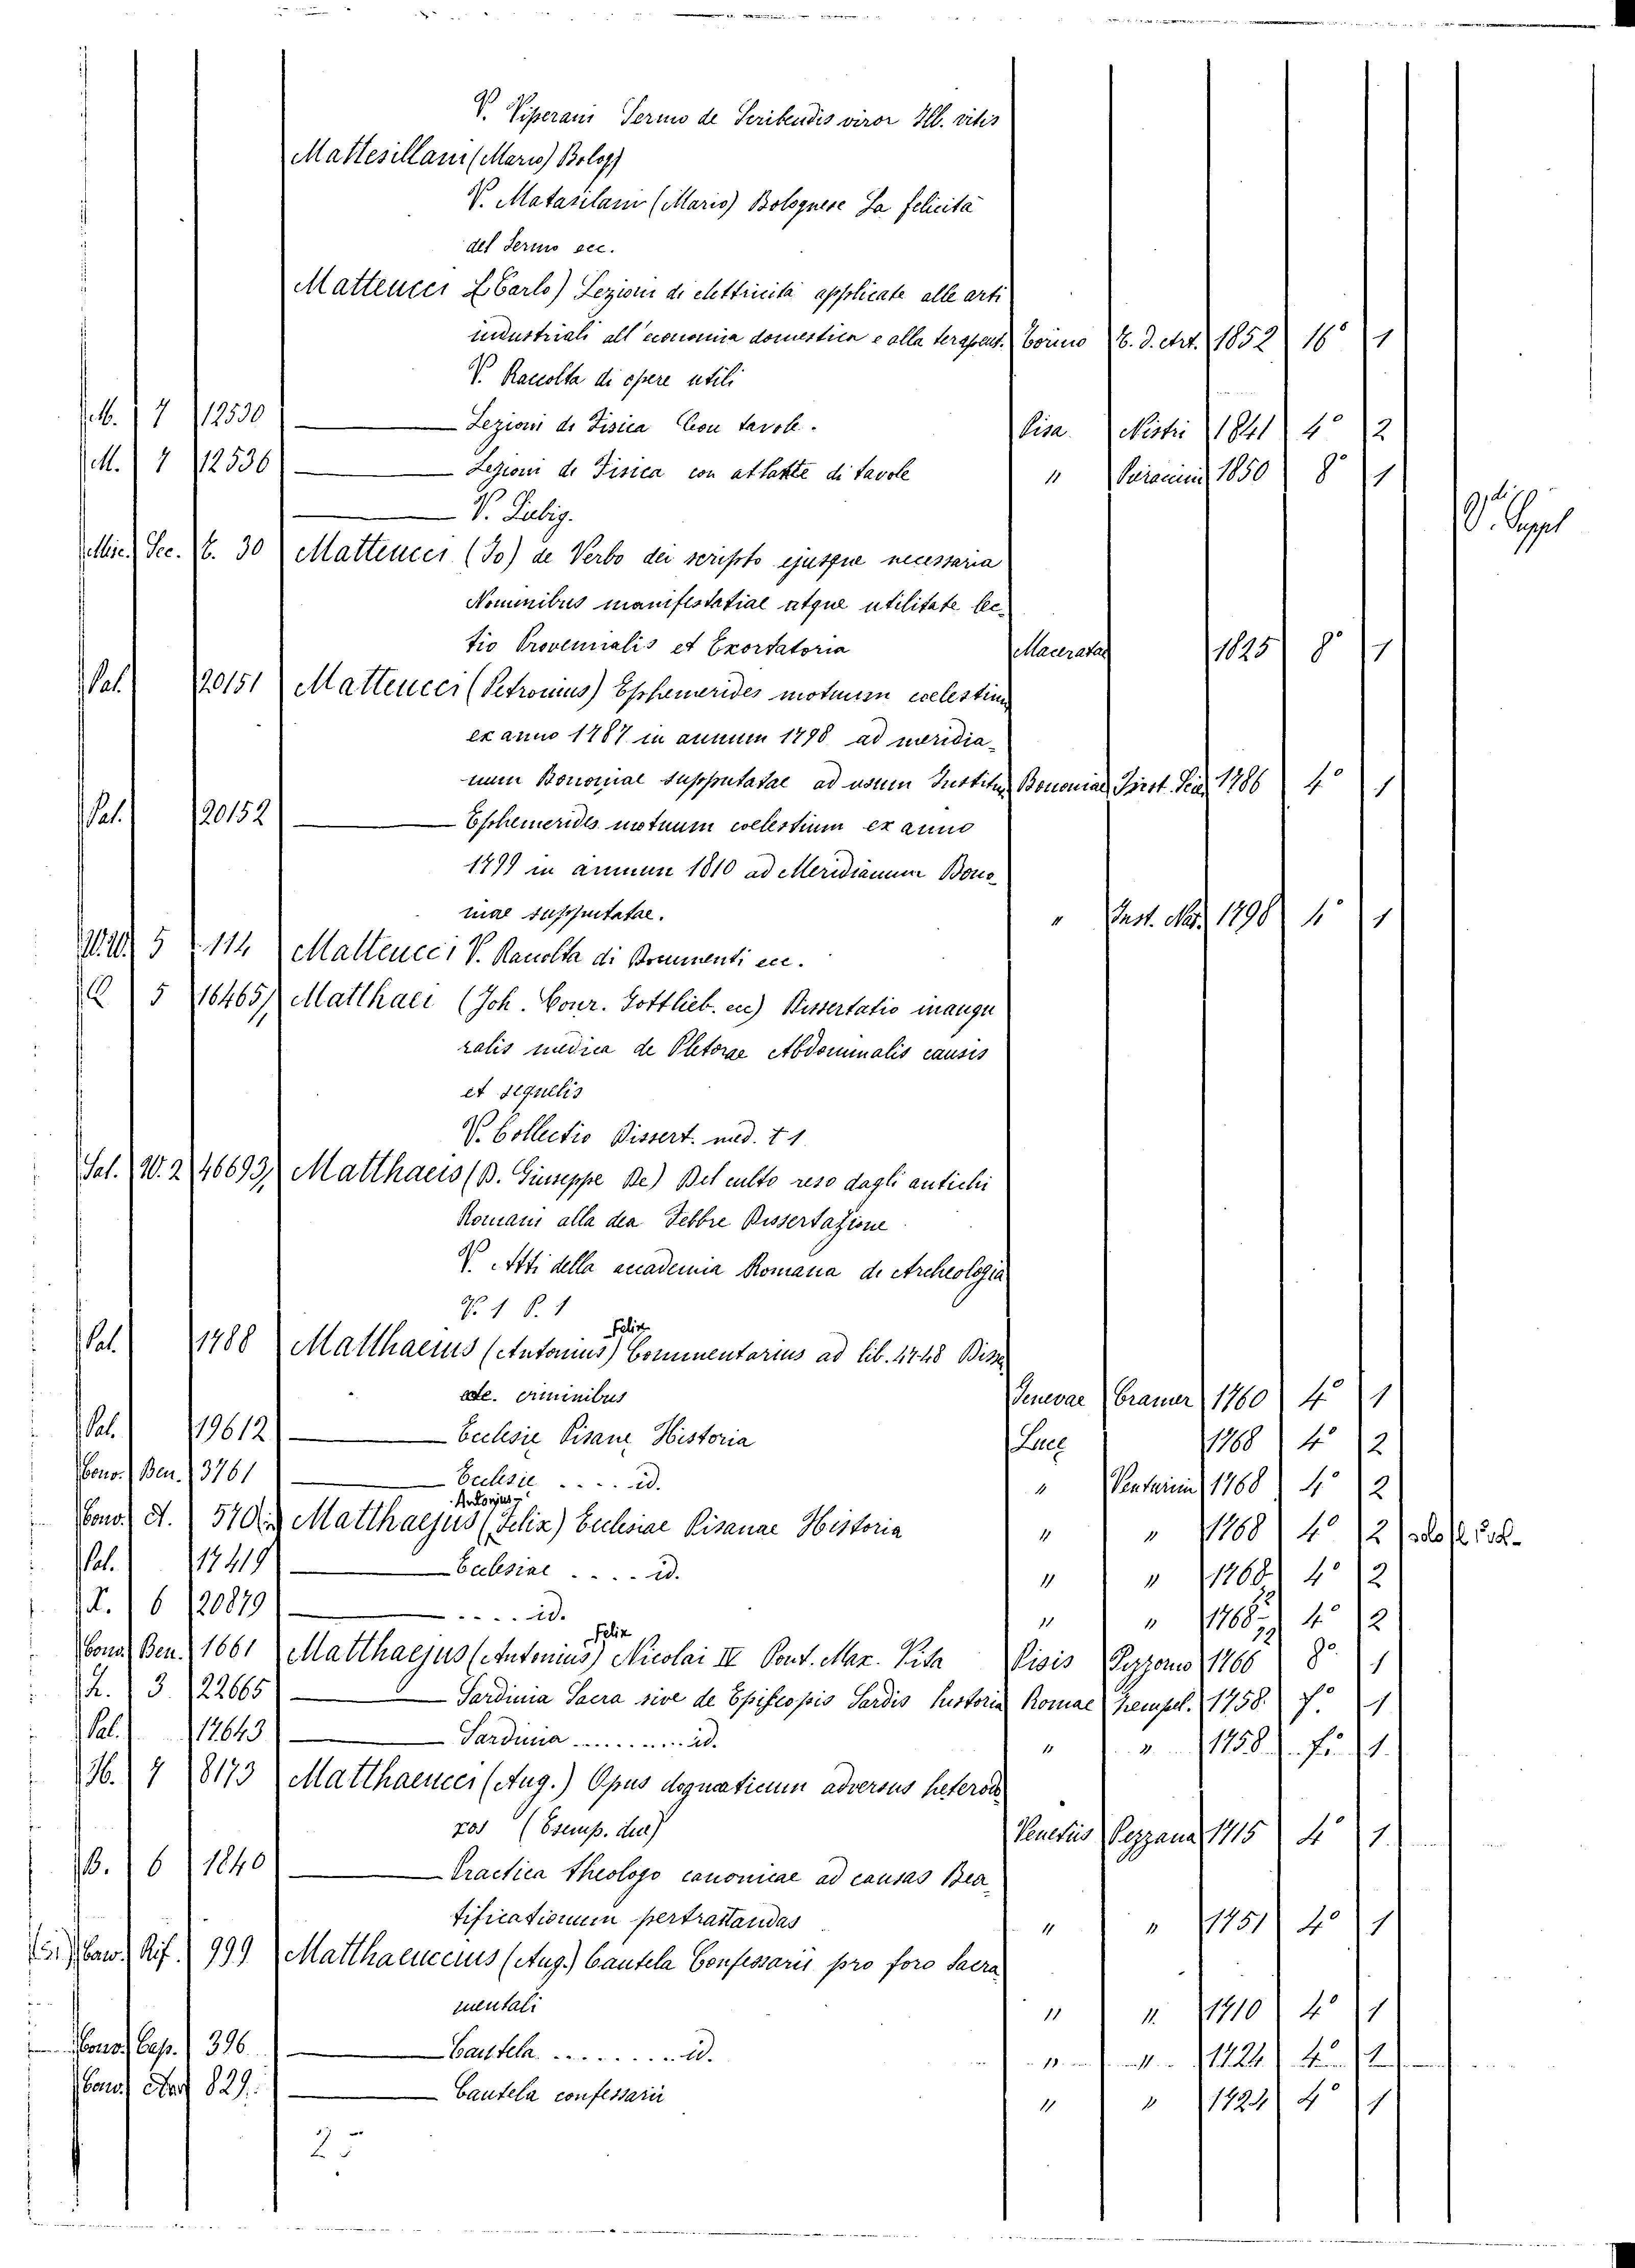 V. Viperani Sermo de Scribendis viror Ill. vitis
Mattesillani (Mario) Bolog)
V. Matasilani (Mario) Bolognese La felicità
del Sermo ecc.
Matteucci (Carlo) Lezioni di elettricità applicate alle arti
industriali all'economia domestica e alla terapeut. Torino T. d. Art. 1852 16° 1
V. Raccolta di opere utili
M. 7 12530 Lezioni di Fisica Con tavole. Pisa Nistri 1841 4° 2
M. 7 12536 Lezioni di Fisica con atlante di tavole " 1850 8° 1
V. Liebig. V. Suppl
Misc. Sec. T. 30 Matteucci (Jo) de Verbo dei scripto ejusque necessaria
Nominibus manifestatial atque utilitate lec
tio Provemialis et Exortatoria Maceratae 1825 8° 1
Pal. 20151 Matteucci (Petronius) Ephemerides motuum coelestium
ex anno 1787 in annum 1798 ad meridia-
num Bononiae supputatae ad usum Institus Bononiae Inst. Scie 1786 4° 1
Pal. 20152 Ephemerides motuum coelestium ex anno
1799 in annum 1810 ad Meridianum Bono
niae supputatae. " Inst. Naz 1798 4° 1
W.W. 5 114 Matteucci V. Raccolta di Documenti ecc.
Q 5 16465 Matthaei (Joh. Conr. Gottlieb. en) Dissertatio inaugu
ralis medica de Pletorae Abdominalis causis
et sequelis
V. Collectio Dissert. med. t 1
Sal. W. 2 46693 Matthaeis (D. Giuseppe De) Del culto reso dagli antichi
Romani alla dea Febbre Dissertazione
V. Atti della accademia Romana di Archeologia
T. 1 P. 1
Felix
Pal. 1788 Matthaeius (Antonius) Commentarius ad lib. 47.48 Disse
de. criminibus Genevae Cramer 1760 4° 1
Pal. 19612 Ecclesie Pisane Historia Luce 1768 4° 2
Cono. Ben. 3761 Ecclesie .... id. " Venturini 1768 4° 2
Antonius
Cono. A. 570 Matthaejus (Felix) Ecclesiae Pisanae Historia " " 1768 4° 2 solo il
Pal. 17419 Ecclesiae .... id. " " 1768 4° 2
I. 6 20879 .... id. " " 1768-72 4° 2
Felix
Cono. Ben. 1661 Matthaejus (Antonius) Nicolai IV Pont. Max. Vita Pisis Pizzorno 1766 8° 1
L. 3 22665 Sardinia Sacra sive de Episcopis Sardis historia Romae Zempel. 1758 f° 1
Pal. 17643 Sardinia ......... id. " " 1758 f° 1
H. 7 8173 Matthaeucci (Aug.) Opus dogmaticum adversus heterodo
xos (Esemp. due) Venetiis Pezzana 1715 4° 1
B. 6 1840 Practica theologo canonicae ad causas Bea
tificationum pertrattandas " " 1751 4° 1
Caw. Rif. 999 Matthaeuccius (Aug.) Cautela Confessarii pro foro Sacra
mentali " " 1710 4° 1
Cono. Cap. 396 Cautela ......... id. " " 1724 4° 1
Cono. 829. Cautela confessarii " " 1724 4° 1
25